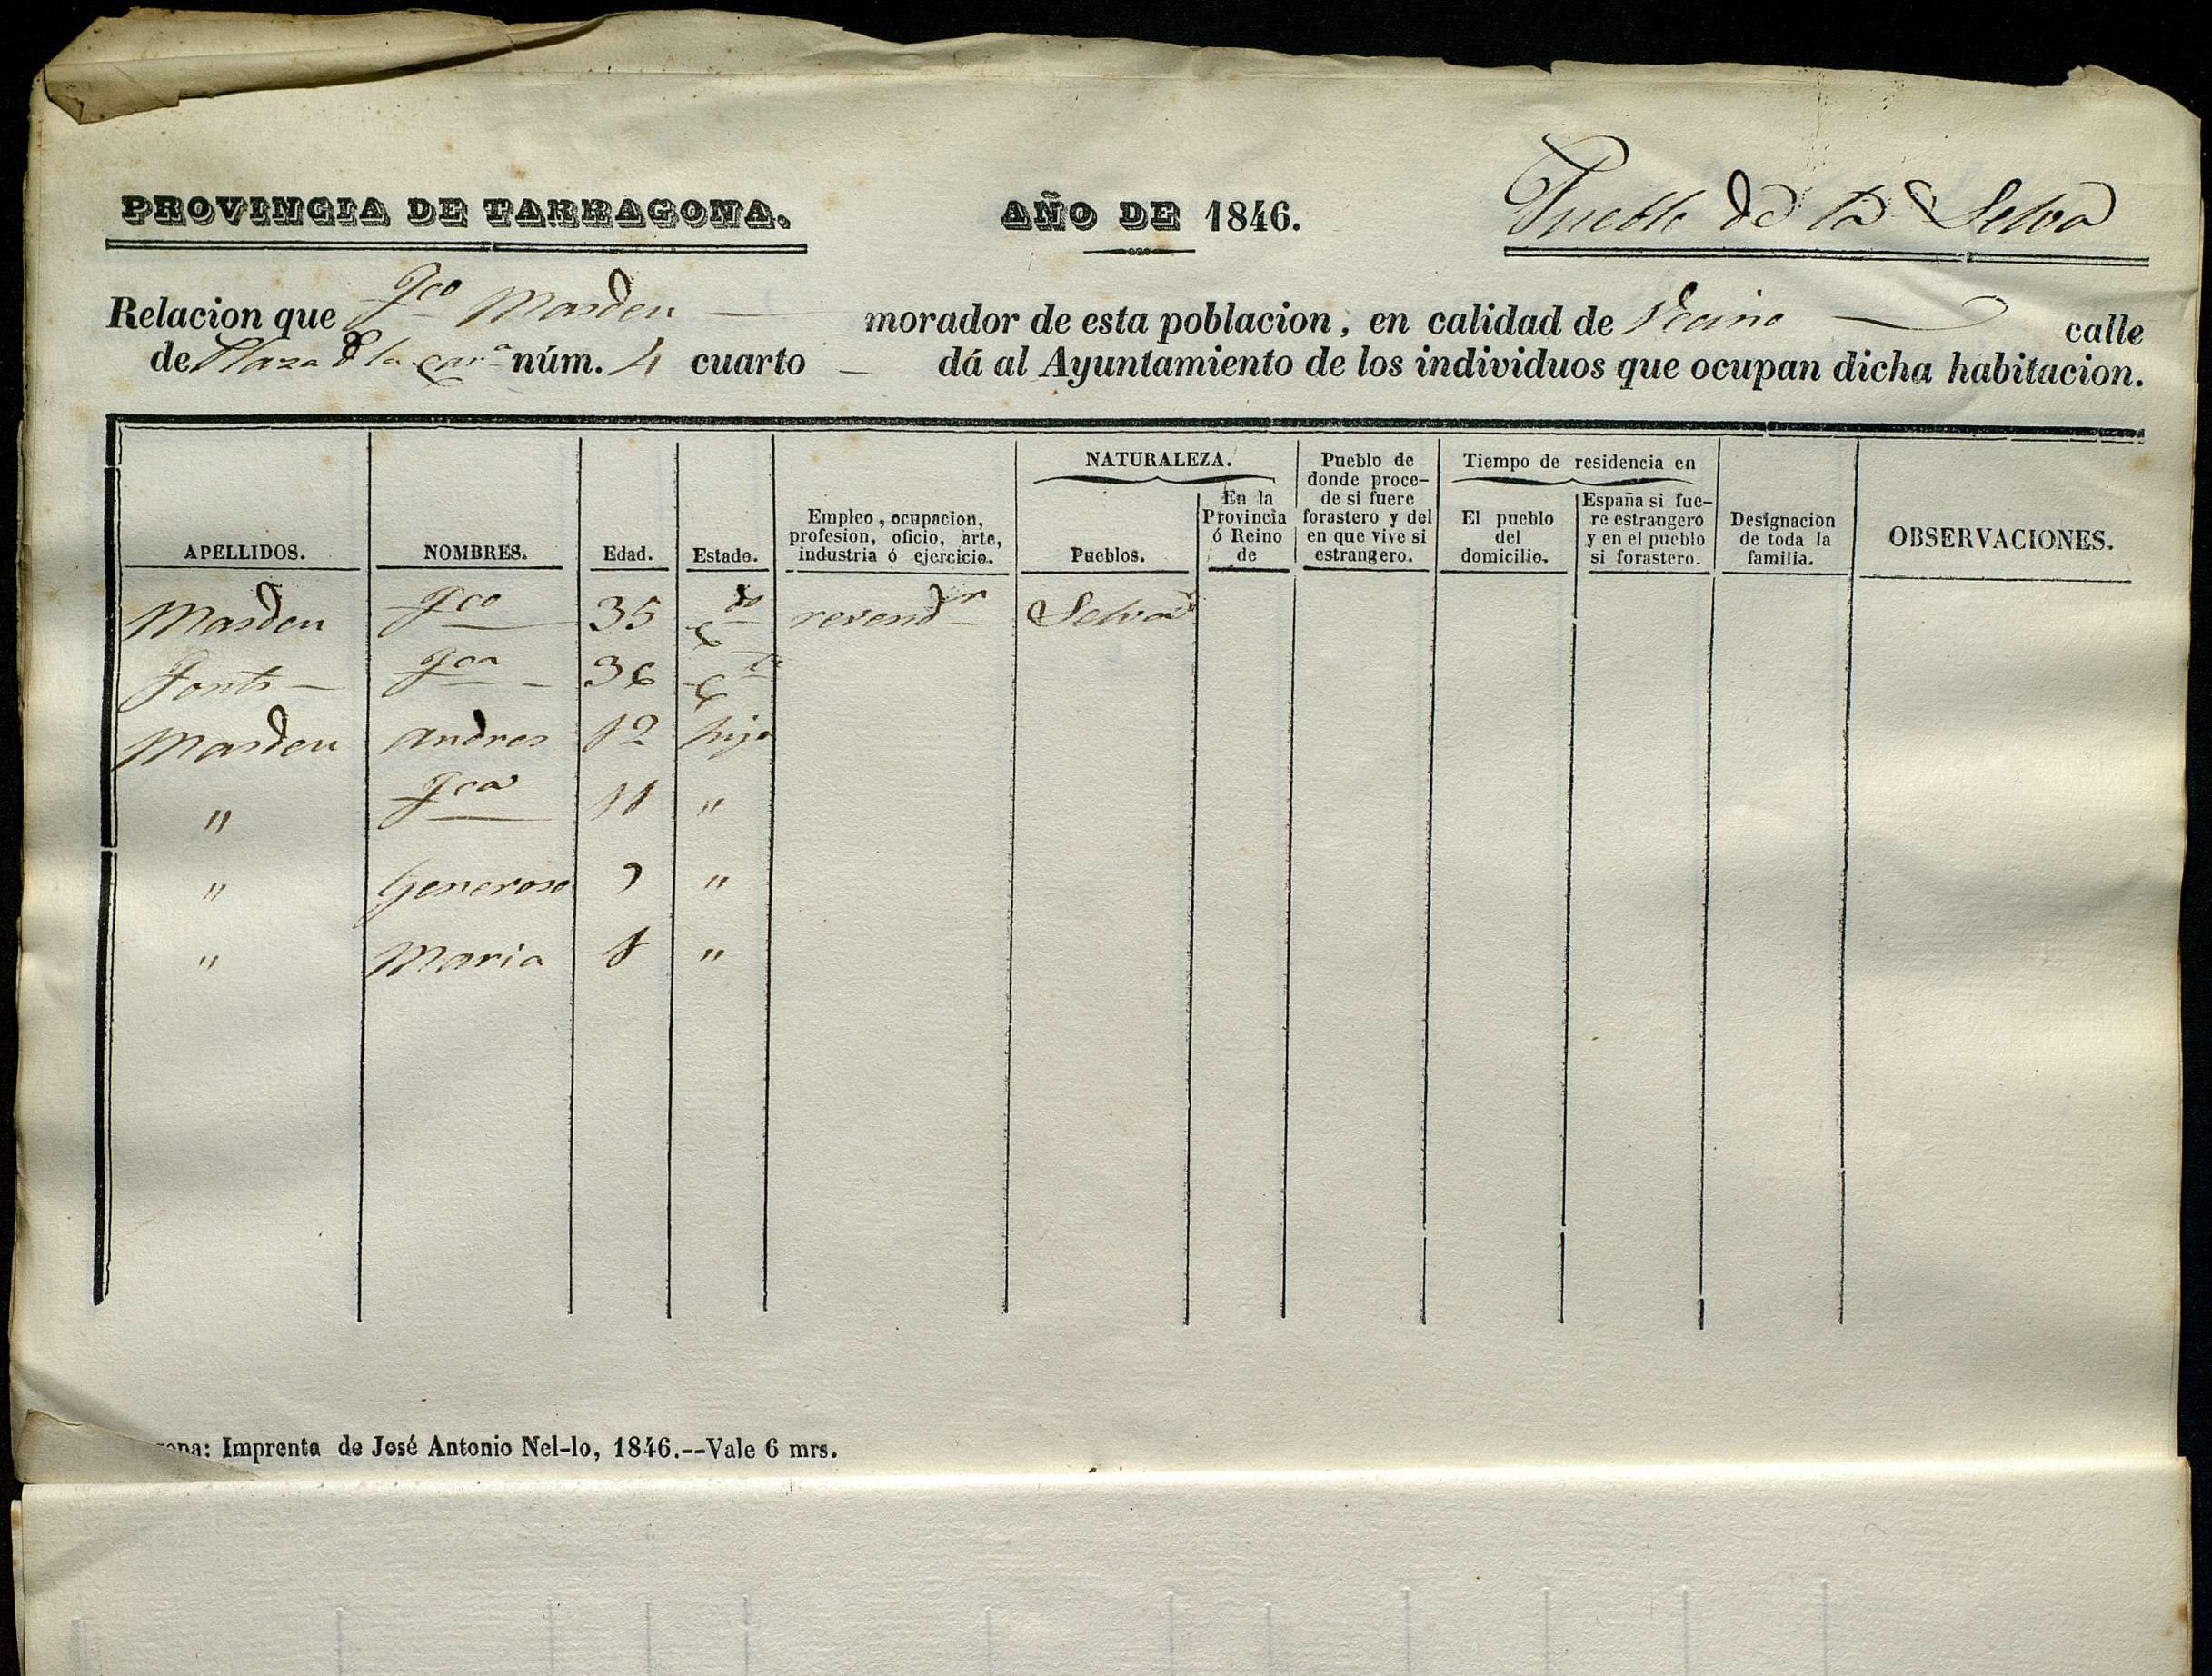 PROVINCIA DE TARRAGONA. AÑO DE 1846. Pueblo de la Selva
Relacion que Fco Masdeu — morador de esta poblacion, en calidad de Vecino — calle
de Plaza d la núm. 4 cuarto — dá al Ayuntamiento de los individuos que ocupan dicha habitacion.
APELLIDOS. NOMBRES. Edad. Estado. Empleo, ocupacion, profesion, oficio, arte, industria ó ejercicio. NATURALEZA. Pueblos. En la Provincia ó Reino de Pueblo de donde proce-de si fuere forastero y del en que vive si estrangero. Tiempo de residencia en El pueblo del domicilio. España si fue-re estrangero y en el pueblo si forastero. Designacion de toda la familia. OBSERVACIONES.
Masdeu Fco 35 Cdo revendr Selva
Fonts — Fca — 36 Cda
Masdeu Andres 12 hijo
" Fca 11 "
" Generosa 9 "
" Maria 1 "
Imprenta de José Antonio Nel-lo, 1846.--Vale 6 mrs.